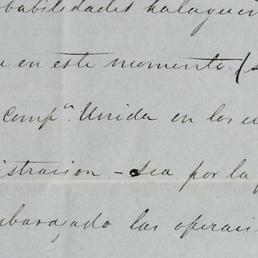 babilidades halagueñ
en este momento (s
Compª. Unida en los
istracion - sea por la
mbarazado las operaci